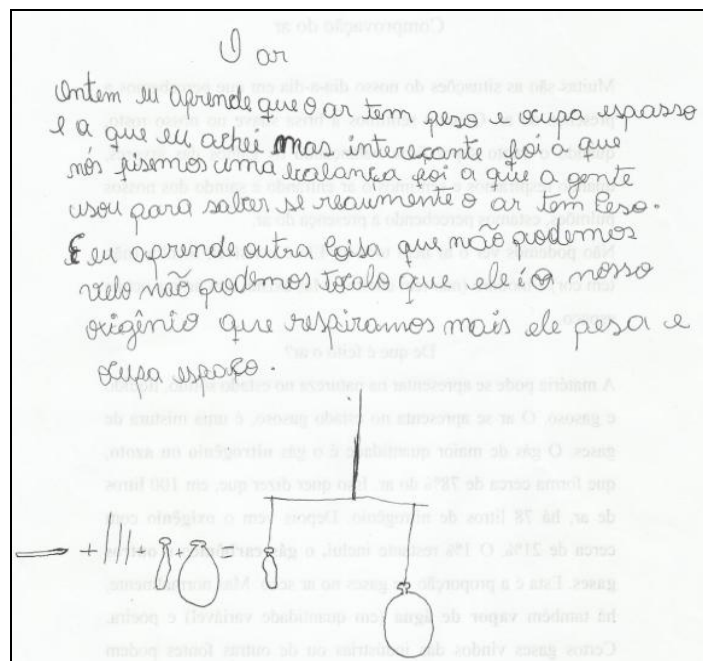 O ar
Ontem eu aprende que o ar tem peso e ocupa espasso
e a que eu achei mas intereçante foi a que
nós fisemos uma balança foi a que a gente
usou para salber se reaumente o ar tem Peso.
E eu aprende outra Coisa que não podemos
velo não podemos tocalo que ele é o nosso
oxigênio que respiramos mais ele pesa e
ocupa espaço.
+ + =